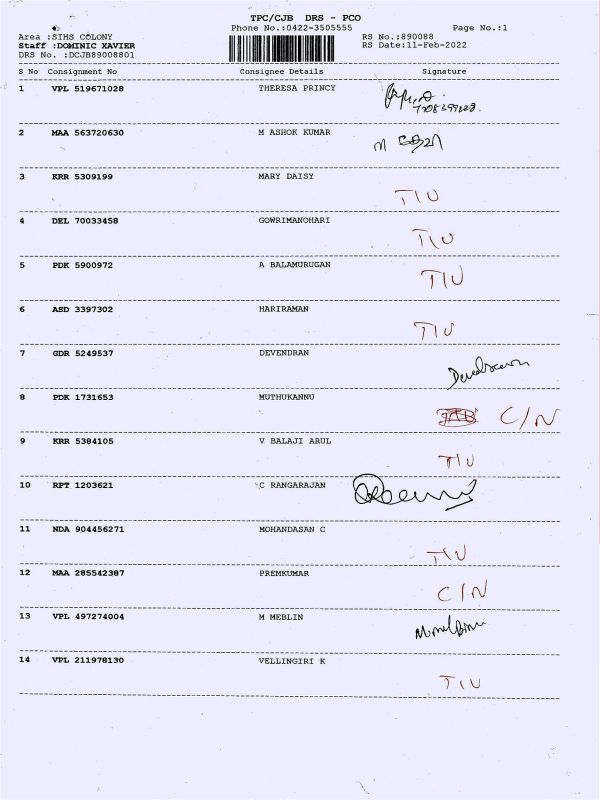 TPC/CJB DRS - PCO
Phone No.:0422-3505555
Page No.:1
Area :SIHS COLONY
Staff :DOMINIC XAVIER
DRS No. :DCJB89008801
RS No.:890088
RS Date:11-Feb-2022
S No Consignment No Consignee Details Signature
1 VPL 519671028 THERESA PRINCY
2 MAA 563720630 M ASHOK KUMAR
3 KRR 5309199 MARY DAISY
TIU
4 DEL 70033458 GOWRIMANOHARI
TIU
5 PDK 5900972 A BALAMURUGAN
TIU
6 ASD 3397302 HARIRAMAN
TIU
7 GDR 5249537 DEVENDRAN
8 PDK 1731653 MUTHUKANNU
C/N
9 KRR 5384105 V BALAJI ARUL
TIU
10 RPT 1203621 C RANGARAJAN
11 NDA 904456271 MOHANDASAN C
TIU
12 MAA 285542387 PREMKUMAR
C/N
13 VPL 497274004 M MEBLIN
14 VPL 211978130 VELLINGIRI K
TIU